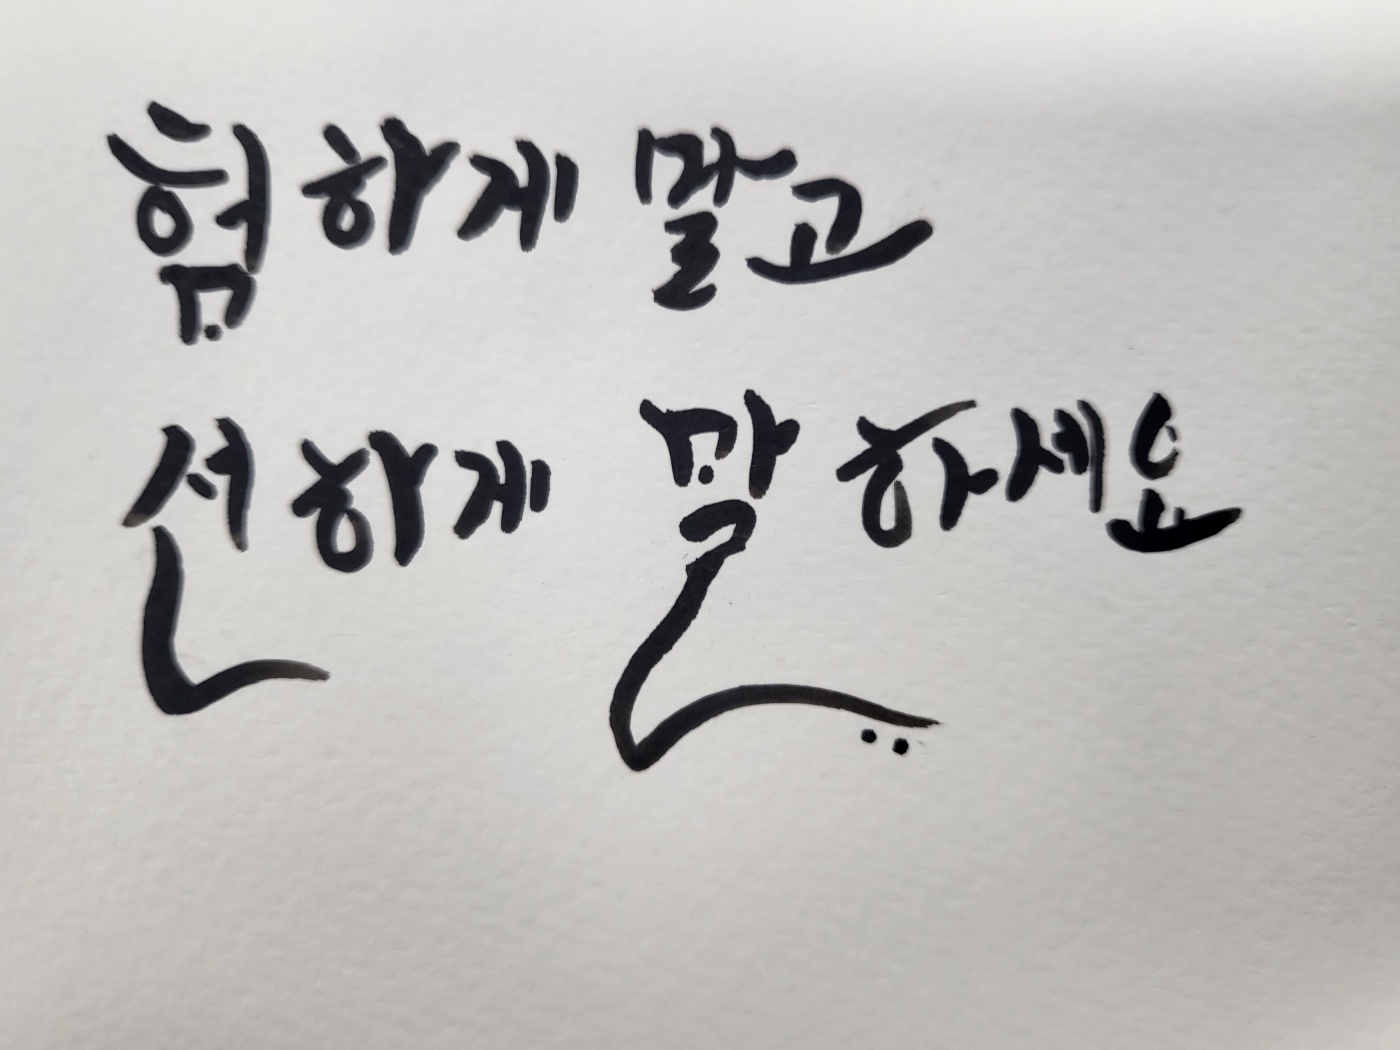 험하게 말고
선하게 말하세요